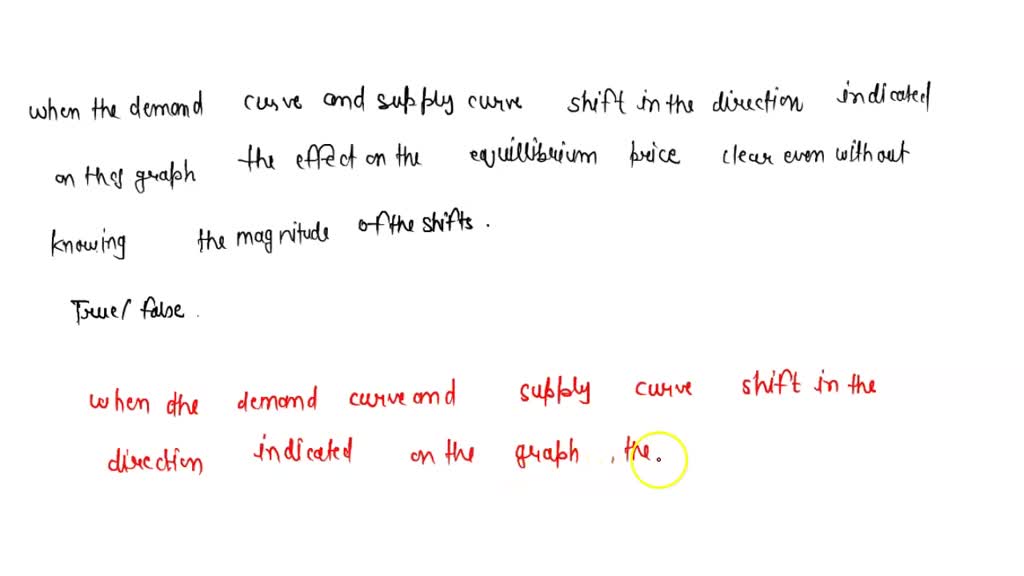 when the demand curve and supply curve shift in the direction indicated
on this graph the effect on the equillibrium price clear even without
knowing the magnitude of the shifts.
True/ false.
when the demand curve and supply curve shift in the
direction indicated on the graph, the.